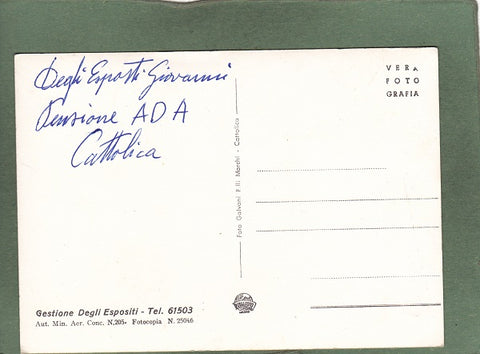 Degli Esposti Giovanni
Pensione ADA
Cattolica
VERA
FOTO
GRAFIA
Foto Galvani F.lli Marchi - Cattolica
Gestione Degli Espositi - Tel. 61503
Aut. Min. Aer. Conc. N.205- Fotocopia N. 25046